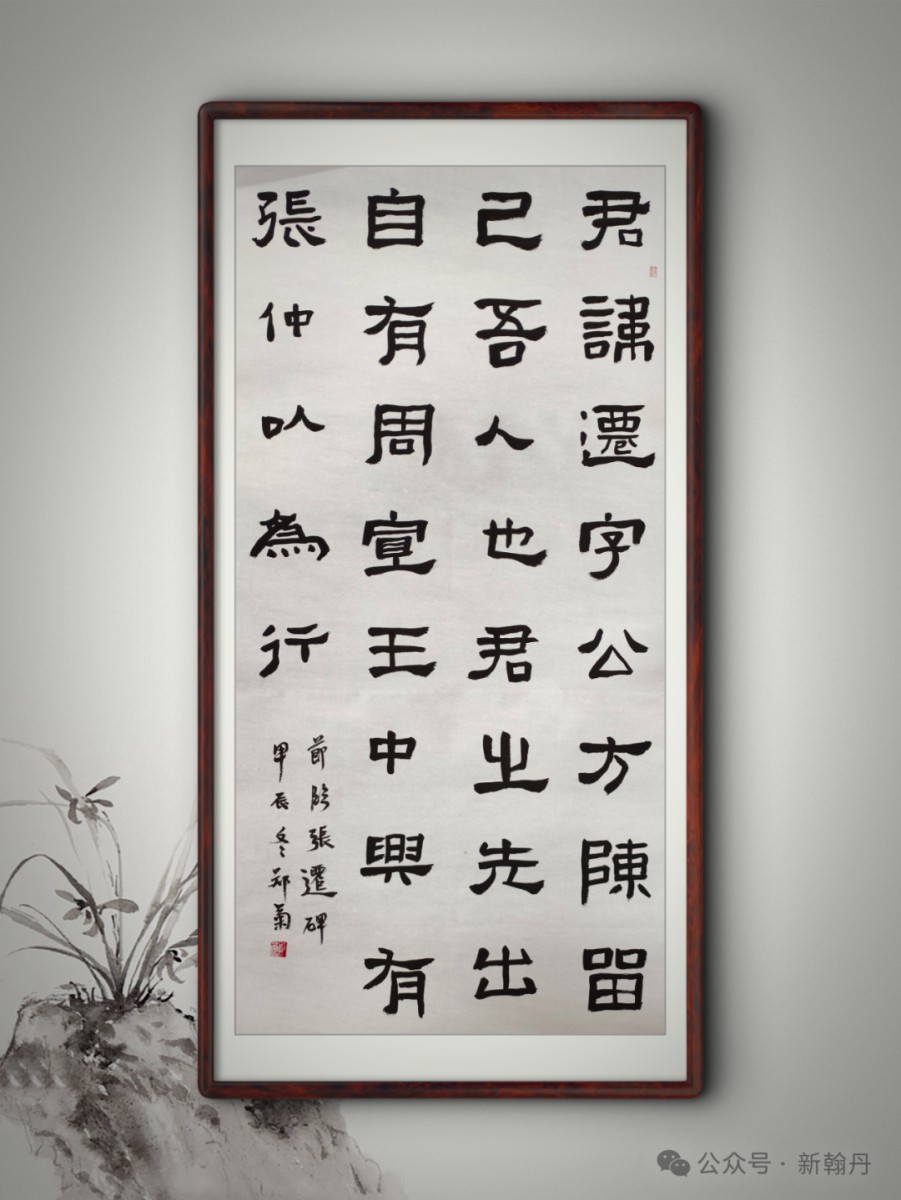 君諱遷字公方陳留
己吾人也君之先出
自有周宣王中興有
張仲以為行
節臨張遷碑
甲辰冬鄭菊
公众号·新翰丹